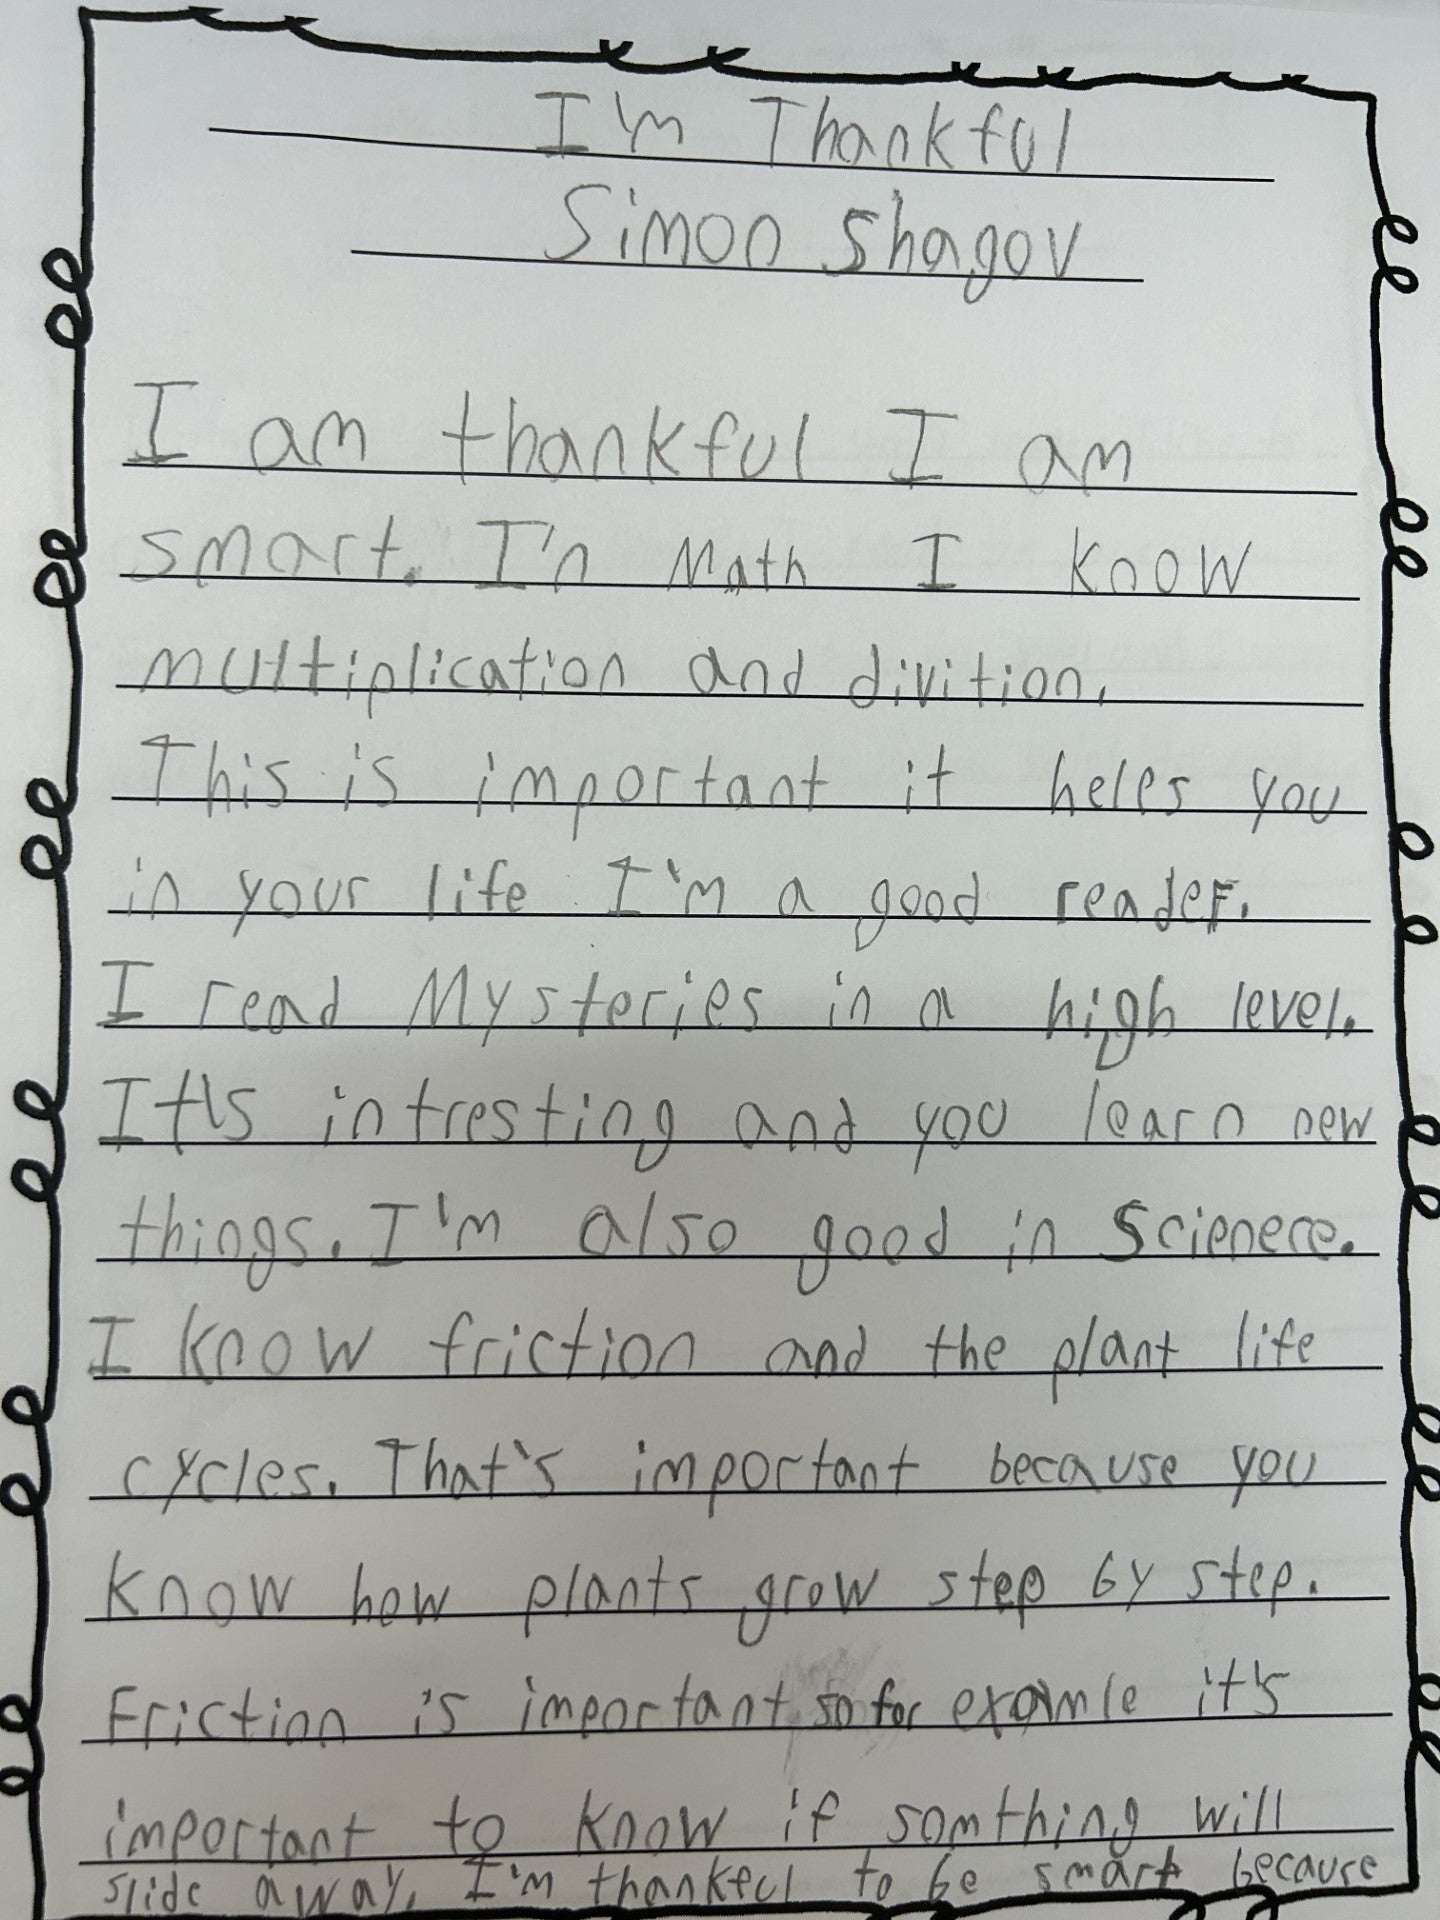 I'm Thankful
Simon Shagov
I am thankful I am
smart. I'n Math I know
multiplication and divition.
This is important it helps you
in your life. I'm a good reader.
I read Mysteries in a high level.
It's intresting and you learn new
things. I'm also good in Scienece.
I know friction and the plant life
cycles. That's important because you
know how plants grow step by step.
Friction is important so for examle it's
important to know if somthing will
slide away. I'm thankful to be smart because